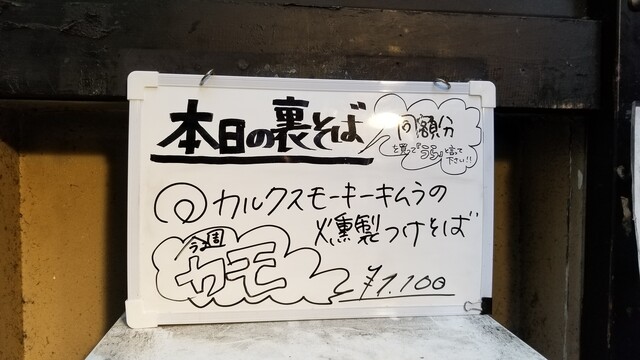 本日の裏そば
同額分
を買って「うら」と言って
下さい!!
カルクスモーキーキムラの
燻製つけそば
今週
カモ
¥1,100